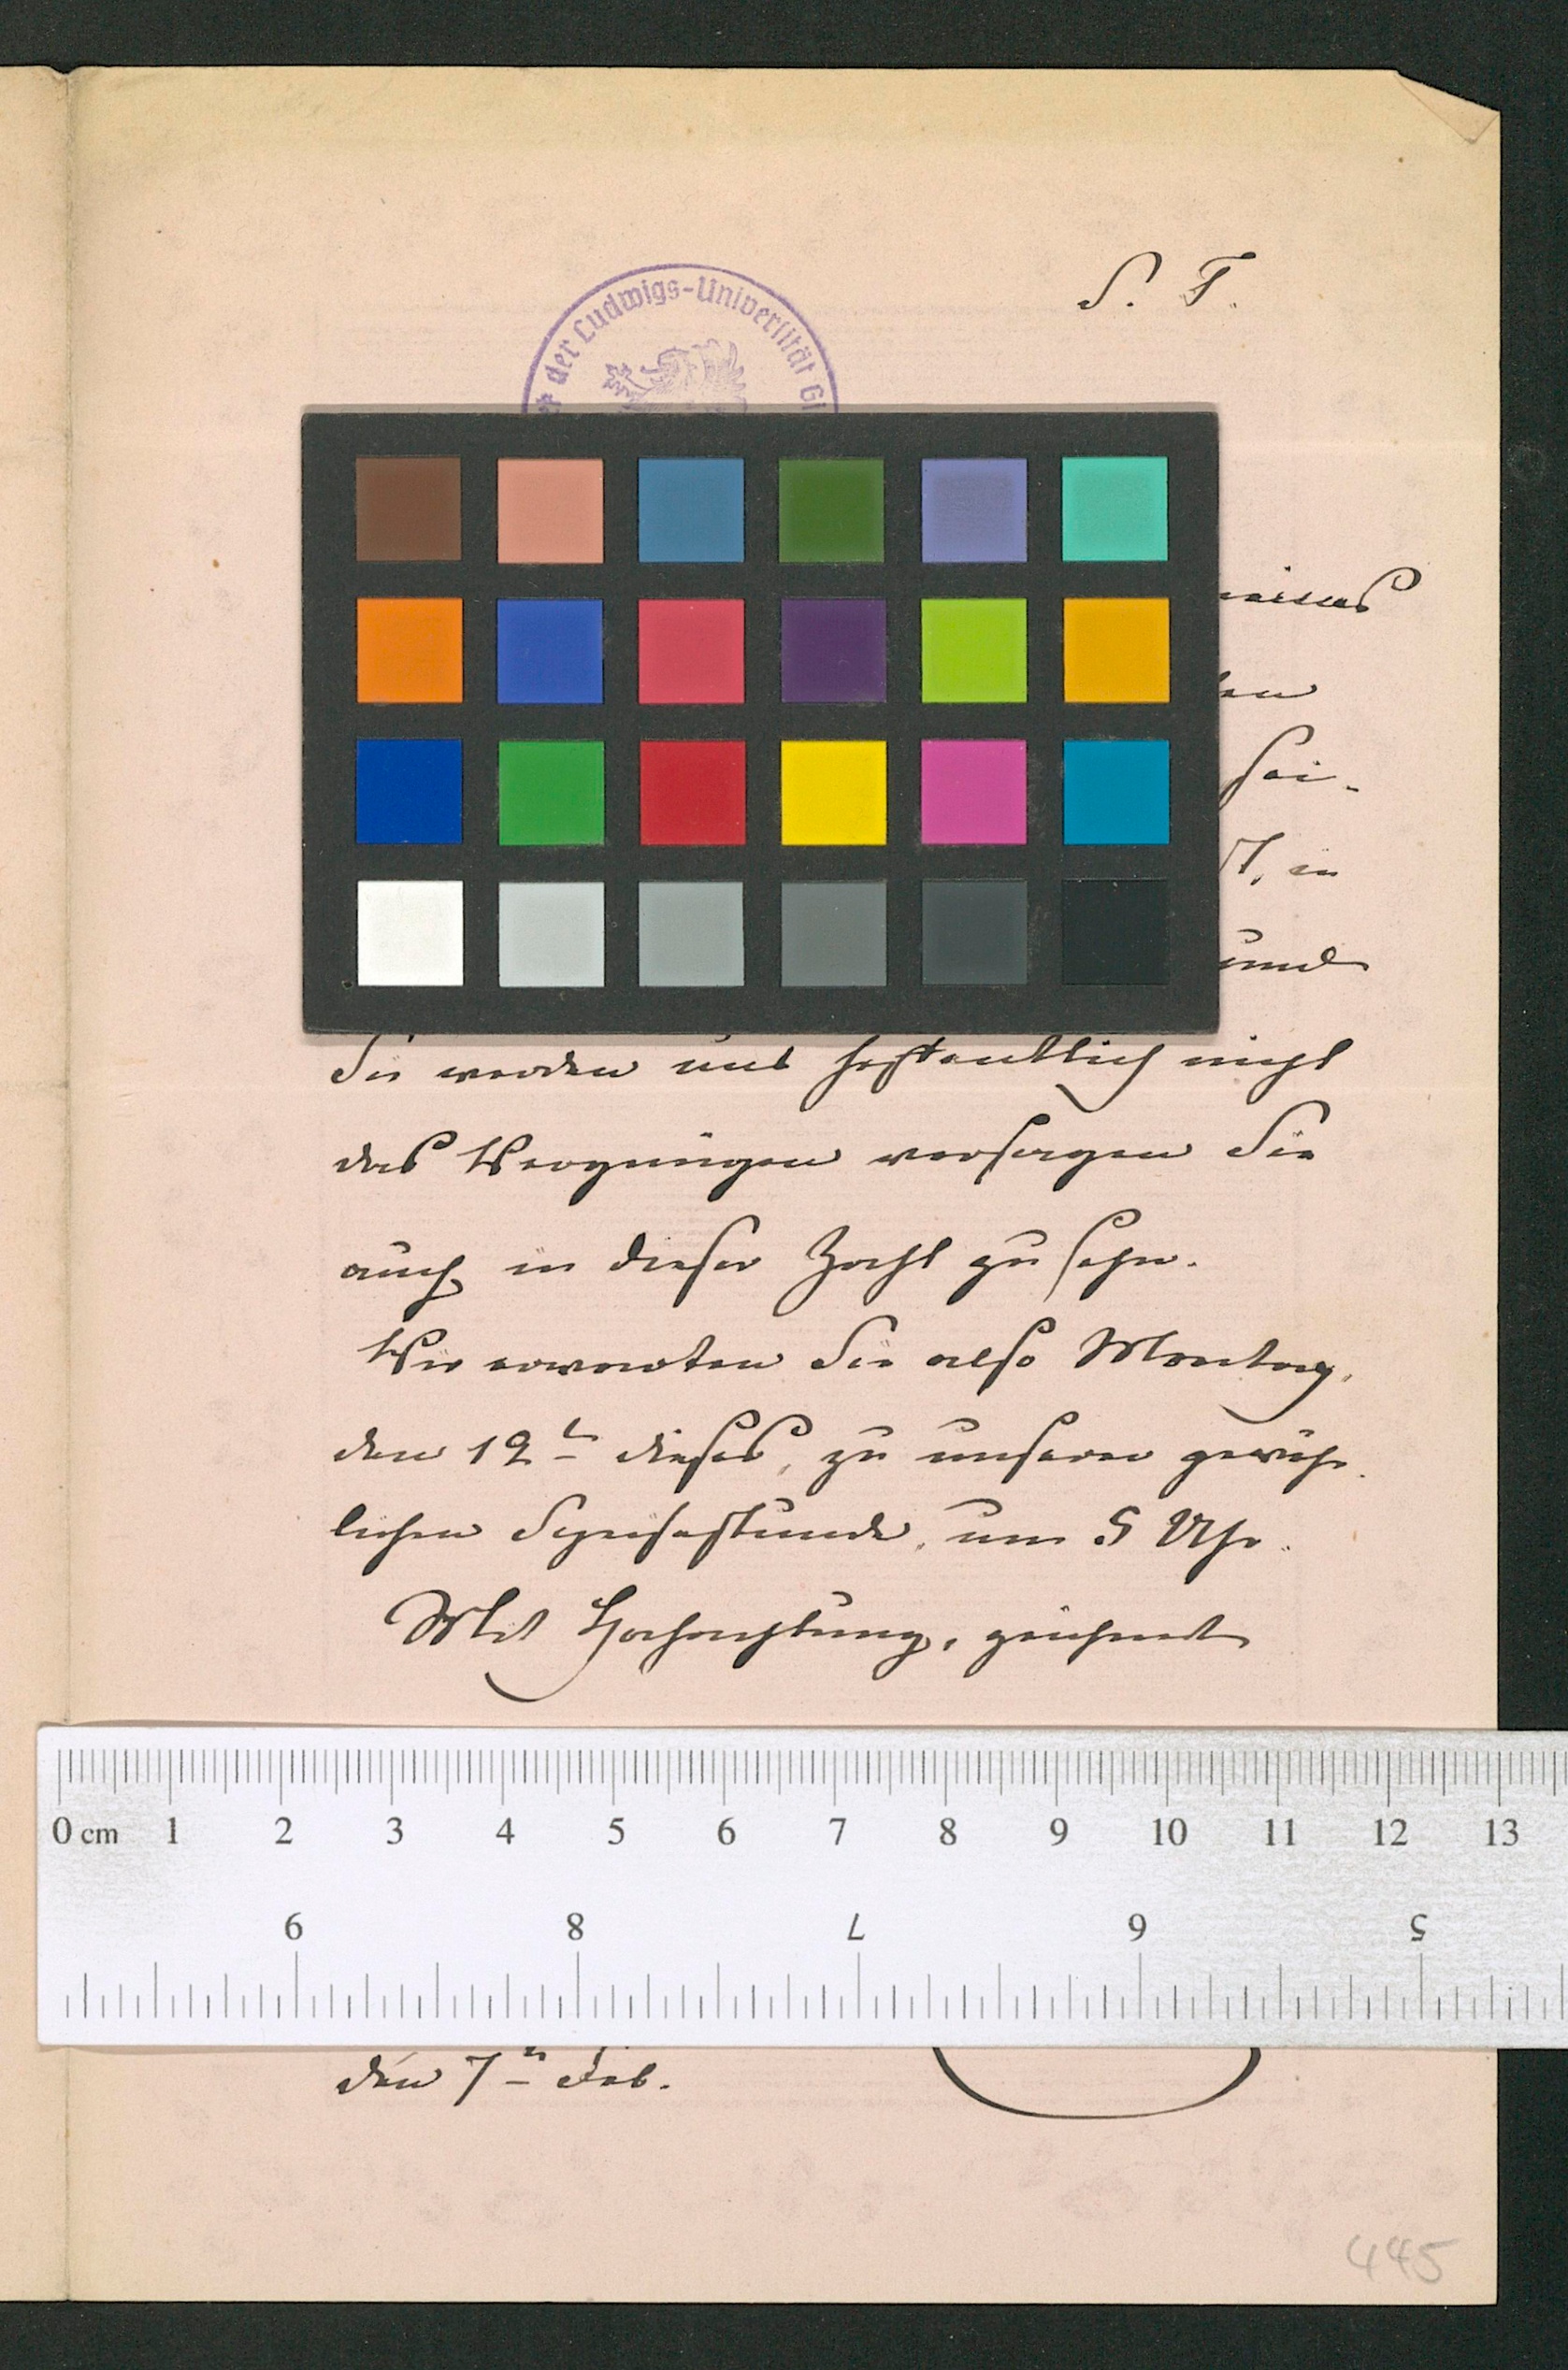 S. T.
der Ludwigs-Universität Gi
sei-
in
und
Sie werden uns hoffentlich nicht
das Vergnügen versagen Sie
auch in dieser Zahl zu sehn.
Wir erwarten Sie also Montag,
den 12t dieses, zu unserer gewöhn
lichen Speisestunde, um 5 Uhr.
Mit Hochachtung, zeichnet
0 cm 1 2 3 4 5 6 7 8 9 10 11 12 13
9 8 7 6 5
den 7n Feb.
445